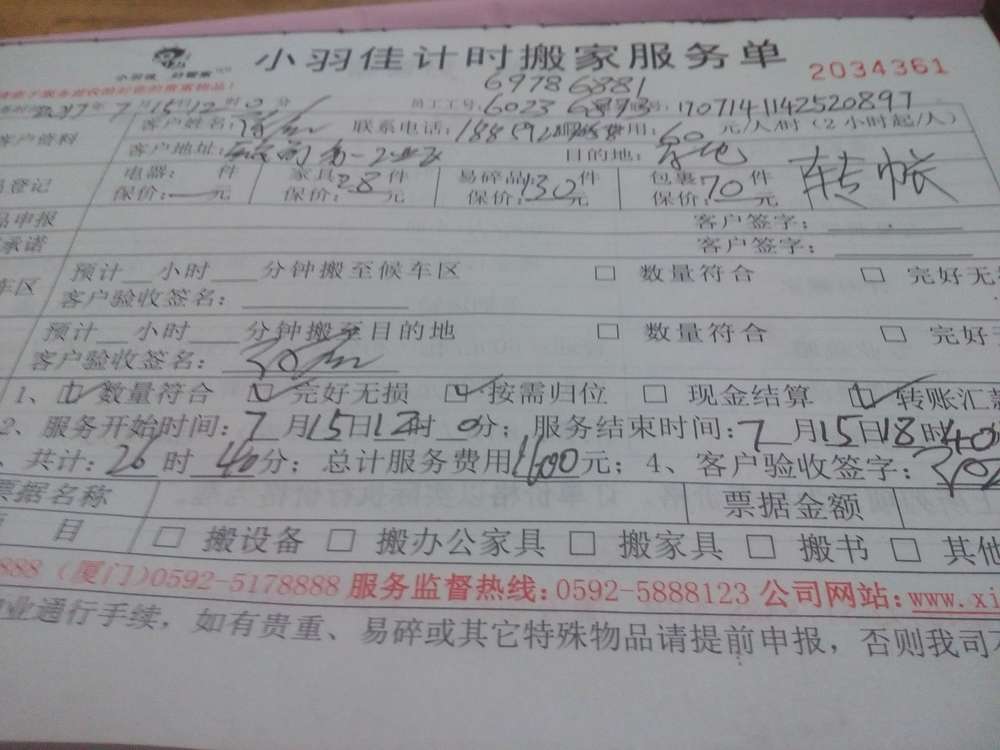 小羽佳计时搬家服务单
2034361
69786881
年7月15日12时0分 员工工号:6023 1707141142520897
客户资料 客户姓名: 联系电话: 费用:60元/人/时(2小时起/人)
客户地址: 目的地:
登记 电器: 件 家具 件 易碎品: 件 包裹 件 转帐
保价:—元 保价:28元 保价:130元 保价:70元
品申报 客户签字:
承诺 客户签字:
车区 预计__小时___分钟搬至候车区 □ 数量符合 □ 完好无
客户验收签名:
预计__小时___分钟搬至目的地 □ 数量符合 □ 完好
客户验收签名:
1、☑数量符合 ☑完好无损 ☑按需归位 □ 现金结算 ☑转账汇
2、服务开始时间:7月15日12时0分;服务结束时间:7月15日18时40
、共计:26时40分;总计服务费用1600元;4、客户验收签字:
票据名称 票据金额
目 □ 搬设备 □ 搬办公家具 □ 搬家具 □ 搬书 □ 其他
888 (厦门)0592-5178888 服务监督热线:0592-5888123 公司网站:www.xi
业通行手续，如有贵重、易碎或其它特殊物品请提前申报，否则我司不